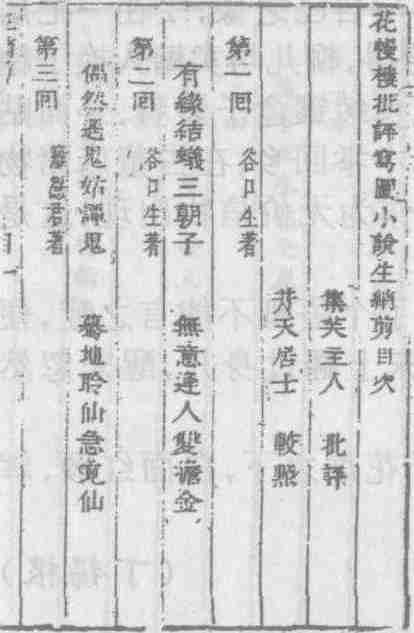 花幔樓批評寫圖小說生綃剪目次
集芙主人 批評
井天居士 較點
第一回 谷口生著
有緣結蟻三朝子 無意逢人雙諡金
第二回 谷口生著
偶然遇鬼姑譚鬼 驀地聆仙急覓仙
第三回 蘿然君著
(丁 楊 根)